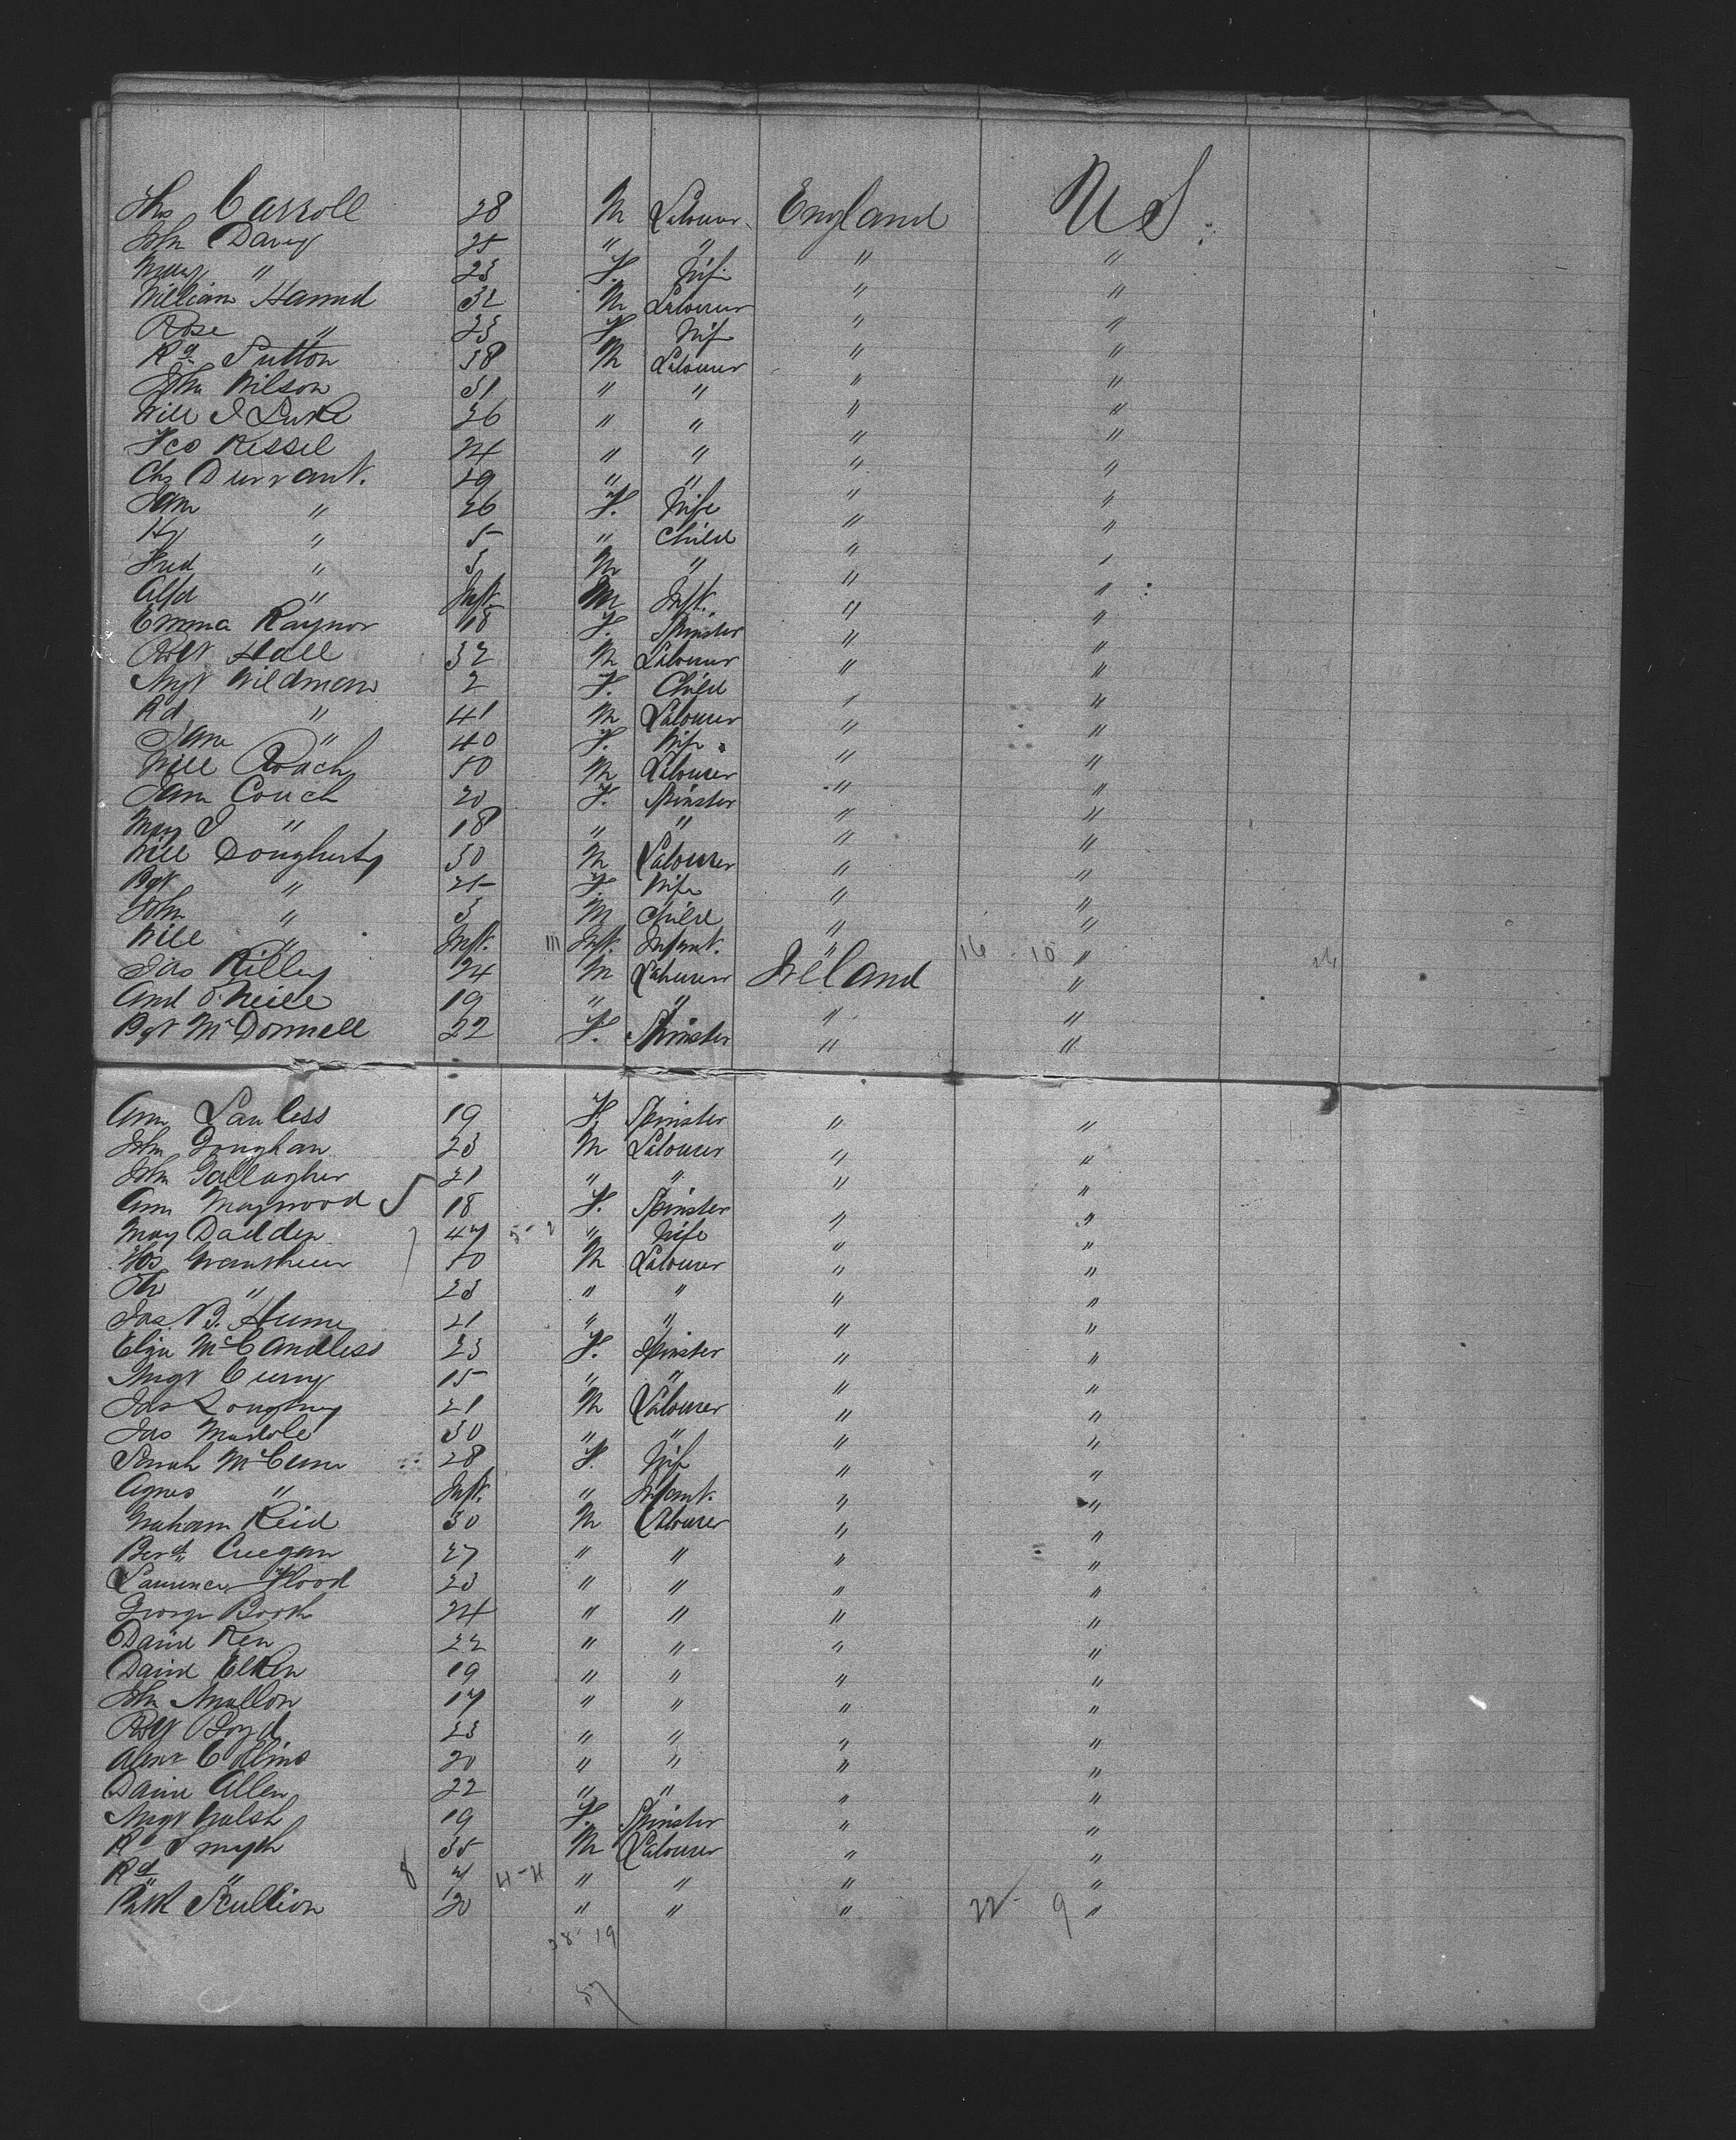 Ths Carroll 28 M Labourer England U S.
John Davey 25 " " " "
Mary " 23 F. Wife " "
William Hannd 32 M Labourer " "
Rose " 23 F Wife " "
Rd Sutton 38 M Labourer " "
John Wilson 31 " " " "
Will J Luke 26 " " " "
Fco Kessel 24 " " " "
Chs Durrant. 29 " " " "
Jane " 26 F. Wife " "
Hy " 5 " Child " "
Fred " 3 M " " "
Alfd " Inft. M Inft. " "
Emma Raynor 18 F. Spinster " "
Robt Hall 32 M Labourer " "
Mgt Wildman 2 F. Child " "
Rd " 41 M Labourer " "
Jane " 40 F. Wife " "
Will Roach 50 M Labourer " "
Jane Couch 20 F. Spinster " "
Mary J " 18 " " " "
Will Dougherty 30 M Labourer " "
Bgt " 25 F Wife " "
John " 3 M Child " "
Will " Inft. 111 Inft. Infant. " 16 - 10 "
Jas Killey 24 M Labourer Ireland "
And O'Neill 19 " " " "
Bgt McDonnell 22 F. Spinster " "
Ann Lawless 19 F. Spinster " "
John Donghan 23 M Labourer " "
John Gallagher 21 " " " "
Ann Maywood 18 F. Spinster " "
May Dadden 47 5-2 " Wife " "
Ths Grantham 50 M Labourer " "
Th " 23 " " " "
Jas. B. Hume 21 " " " "
Eliza McCandless 23 F. Spinster " "
Mgt Curry 15 " " " "
Jas Loughrey 21 M Labourer " "
Jas 30 " " " "
Sarah McCune 28 F. Wife " "
Agnes " Inft. " Infant. " "
Graham Reid 30 M Labourer " "
Bernd Creegan 27 " " " "
Laurence Flood 23 " " " "
George Booth 24 " " " "
David Ken 22 " " " "
David Elken 19 " " " "
John Mallon 17 " " " "
Robt Boyd 23 " " " "
Alexr Collins 20 " " " "
David Allen 22 " " " "
Mgt Walsh 19 F. Spinster " "
Rd Smyth 35 M Labourer " "
Rd " 8 7 4-4 " " " "
Patk Scullion 20 " " " 22 - 9 "
38 19
57